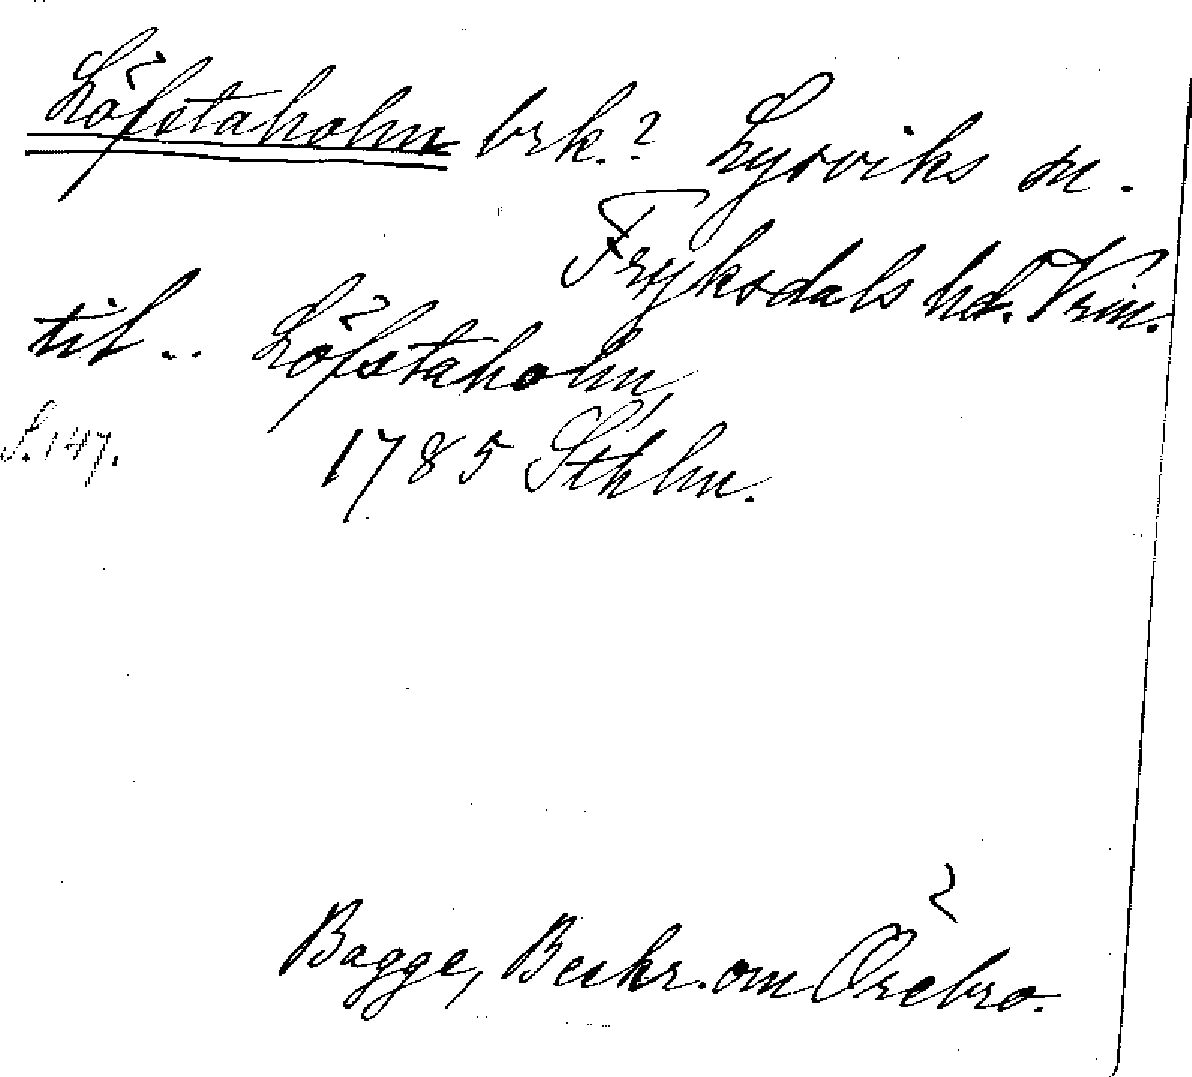 Löfstaholm brk.? Lysviks sn.
Fryksdals hd. Vrm.
til .. Löfstaholm,
S. 147. 1785 Sthlm.
Bagge, Beskr. om Örebro.